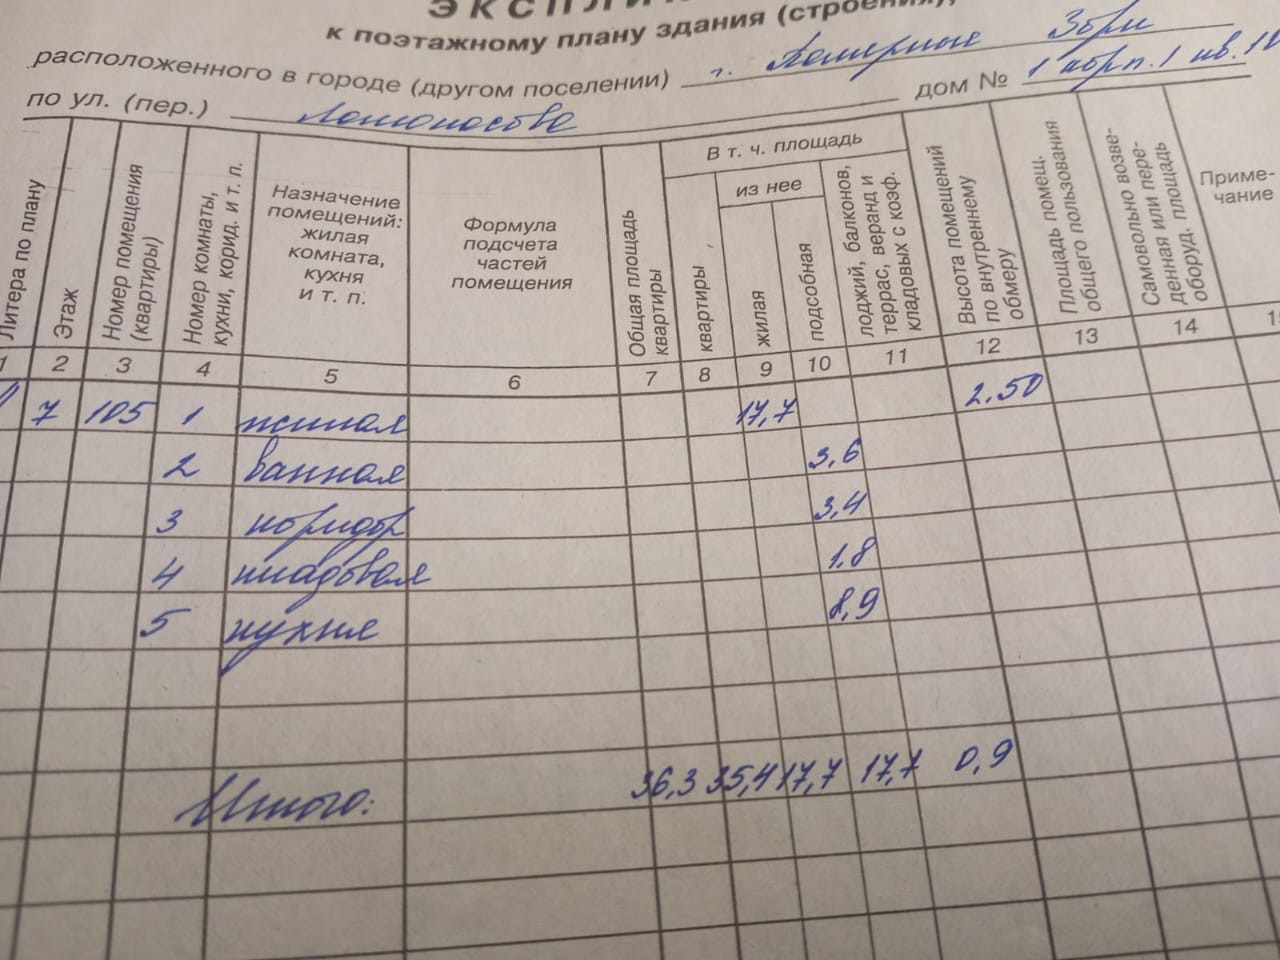 к поэтажному плану здания (строения),
расположенного в городе (другом поселении) г. Полярные Зори
по ул. (пер.) Ломоносова дом № 1 корп. 1 кв.
Литера по плану
Этаж
Номер помещения (квартиры)
Номер комнаты, кухни, корид. и т. п.
Назначение помещений: жилая комната, кухня и т. п.
Формула подсчета частей помещения
Общая площадь квартиры
В т. ч. площадь
квартиры
из нее
жилая
подсобная
лоджий, балконов, террас, веранд и кладовых с коэф.
Высота помещений по внутреннему обмеру
Площадь помещ. общего пользования
Самовольно возведенная или переоборуд. площадь
Приме-
чание
1 2 3 4 5 6 7 8 9 10 11 12 13 14
7 105 1 жилая 17,7 2.50
2 ванная 3,6
3 коридор 3,4
4 кладовая 1.8
5 кухня 8,9
Итого: 36,3 35,4 17,7 17,7 0,9